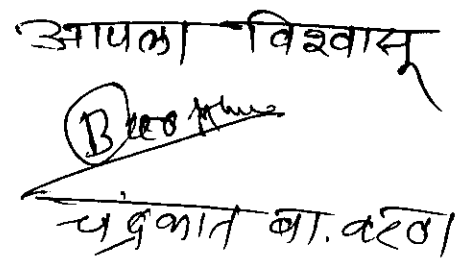 आपला विश्वासू
चंद्रकांत बा. वरठा